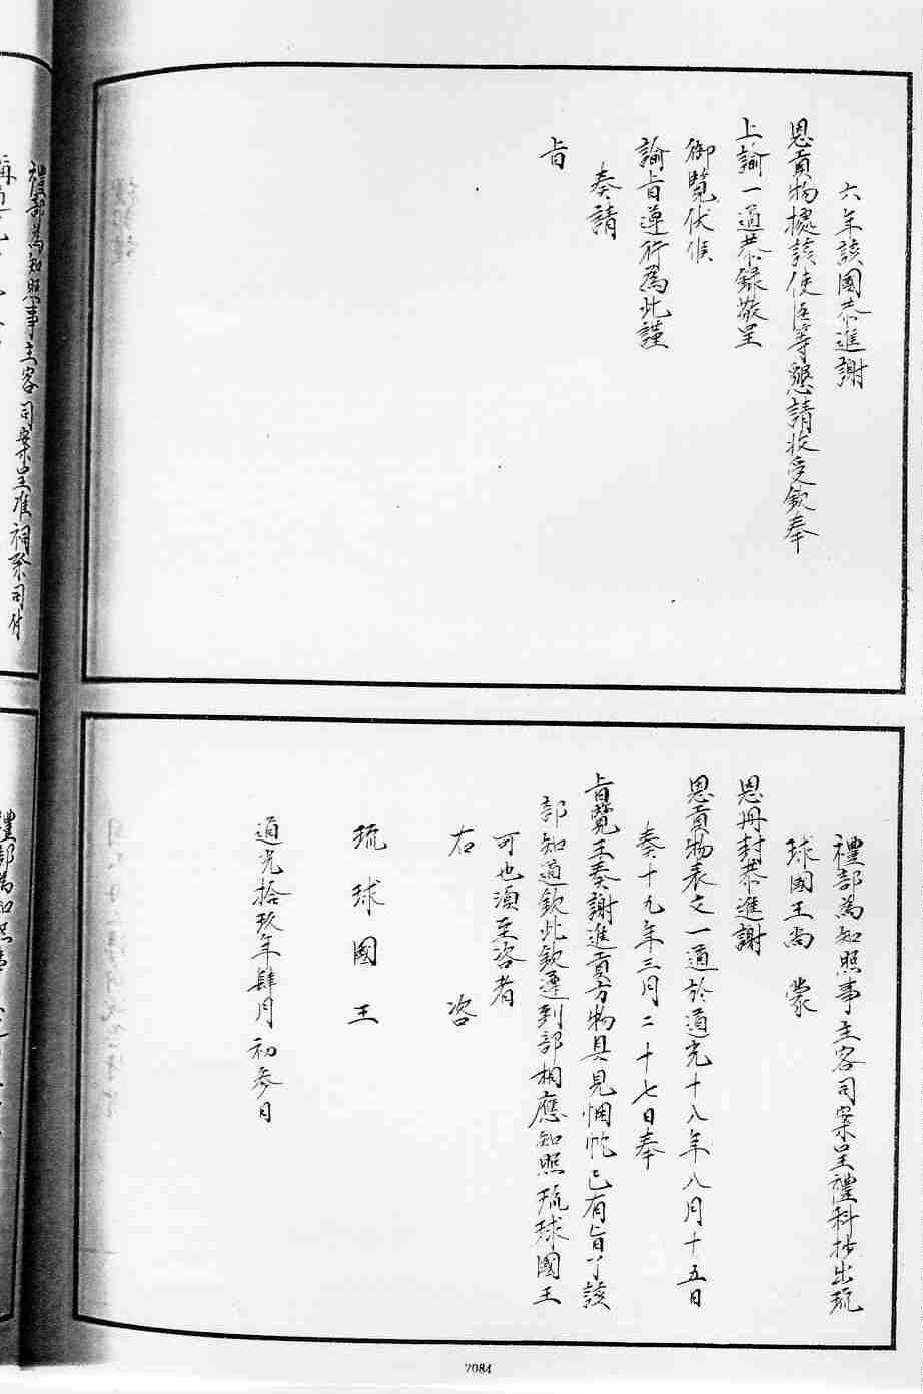 六年該國恭進謝
恩貢物據該使臣等懇請收受欽奉
上諭一道恭錄敬呈
御覽伏候
諭旨遵行為此謹
奏請
旨
禮部為知照事主客司案呈禮科抄出琉
球國王尚 蒙
恩冊封恭進謝
恩貢物表文一通於道光十八年八月十五日
奏十九年三月二十七日奉
旨覽王奏謝進貢方物具見悃忱已有旨了該
部知道欽此欽遵到部相應知照琉球國王
可也須至咨者
右 咨
琉球國王
道光拾玖年肆月初叁日
禮部為知照事主客司案呈准祠祭司付
禮部為知照事
7084